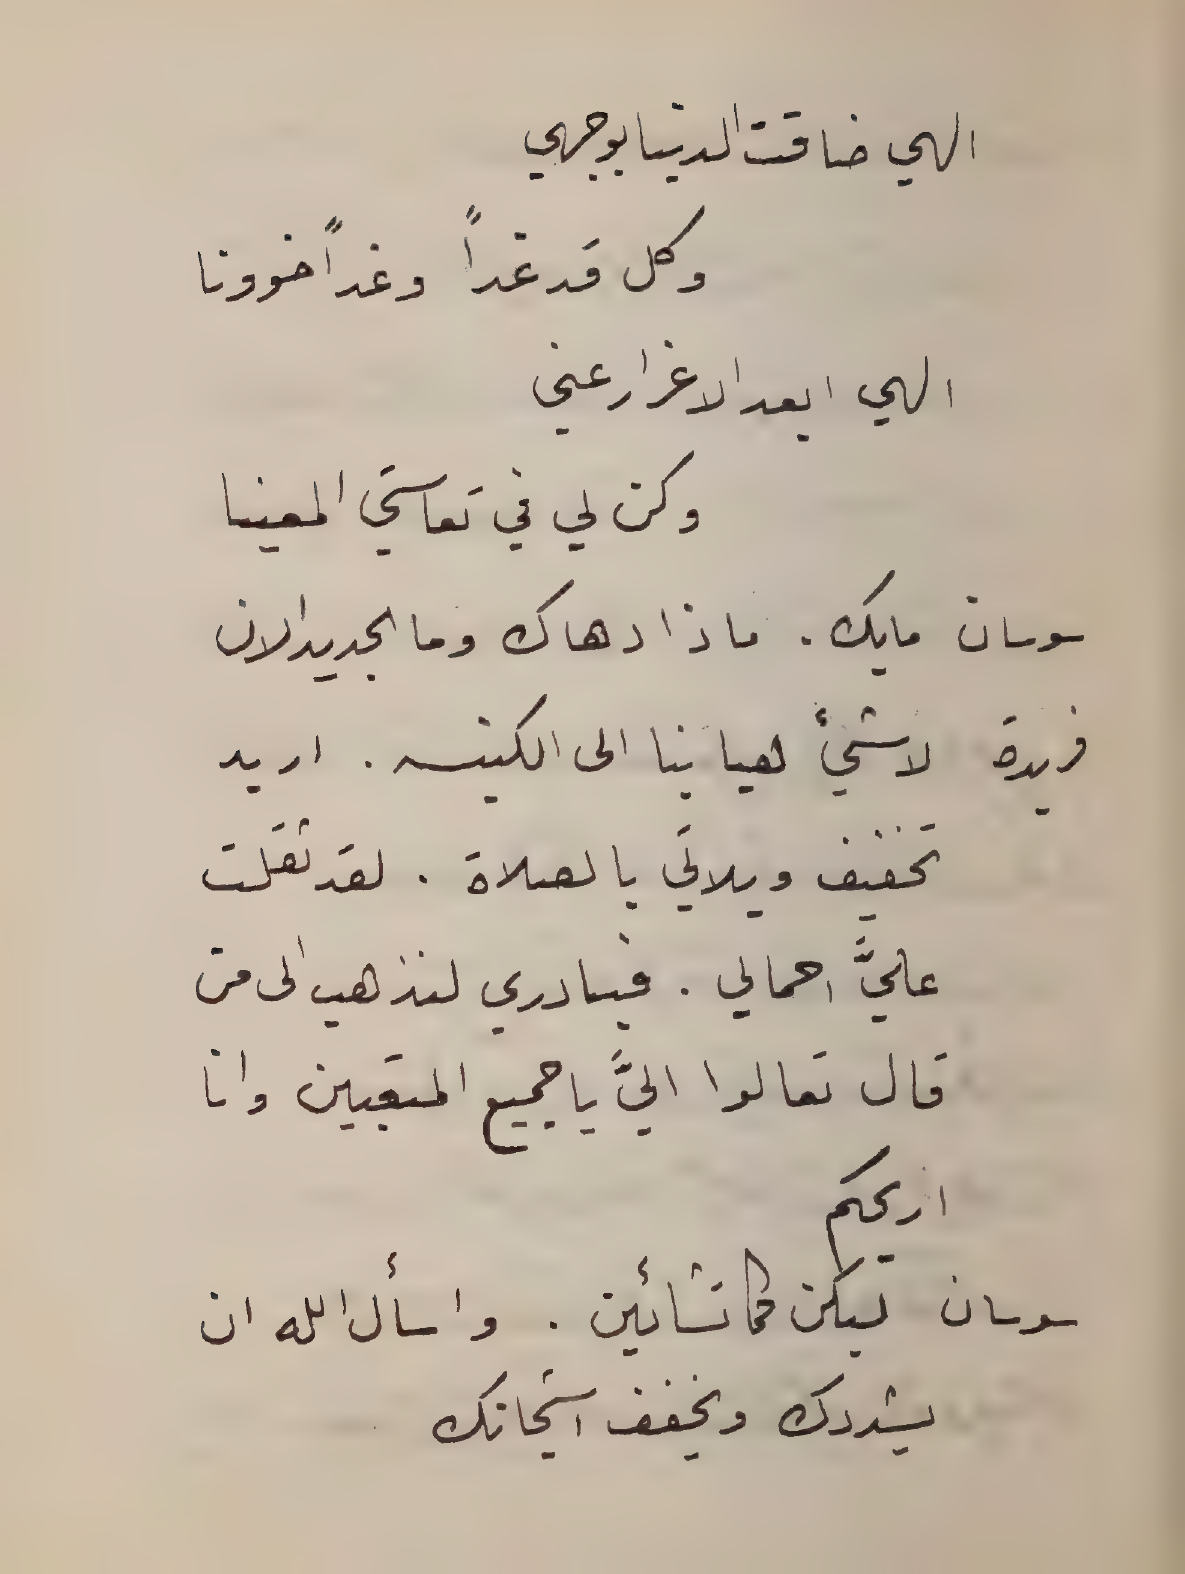 الهي ضاقت الدنيا بوجهي
وكل قد غداً وغداً خوونا
الهي ابعد الاغرار عني
وكن لي في تعاستي المعينا
سوسان مابك . ماذا دهاك وما الجديد الان
فريدة لاشيئ لهيا بنا الى الكنيسه . اريد
تخفيف ويلاتي بالصلاة . لقد ثقلت
عليَّ احمالي . فبادري لنذهب الى من
قال تعالوا اليَّ يا جميع المتعبين وانا
اريحكم
سوسان ليكن كما تشائين . واسأل الله ان
يشددك ويخفف اشجانك